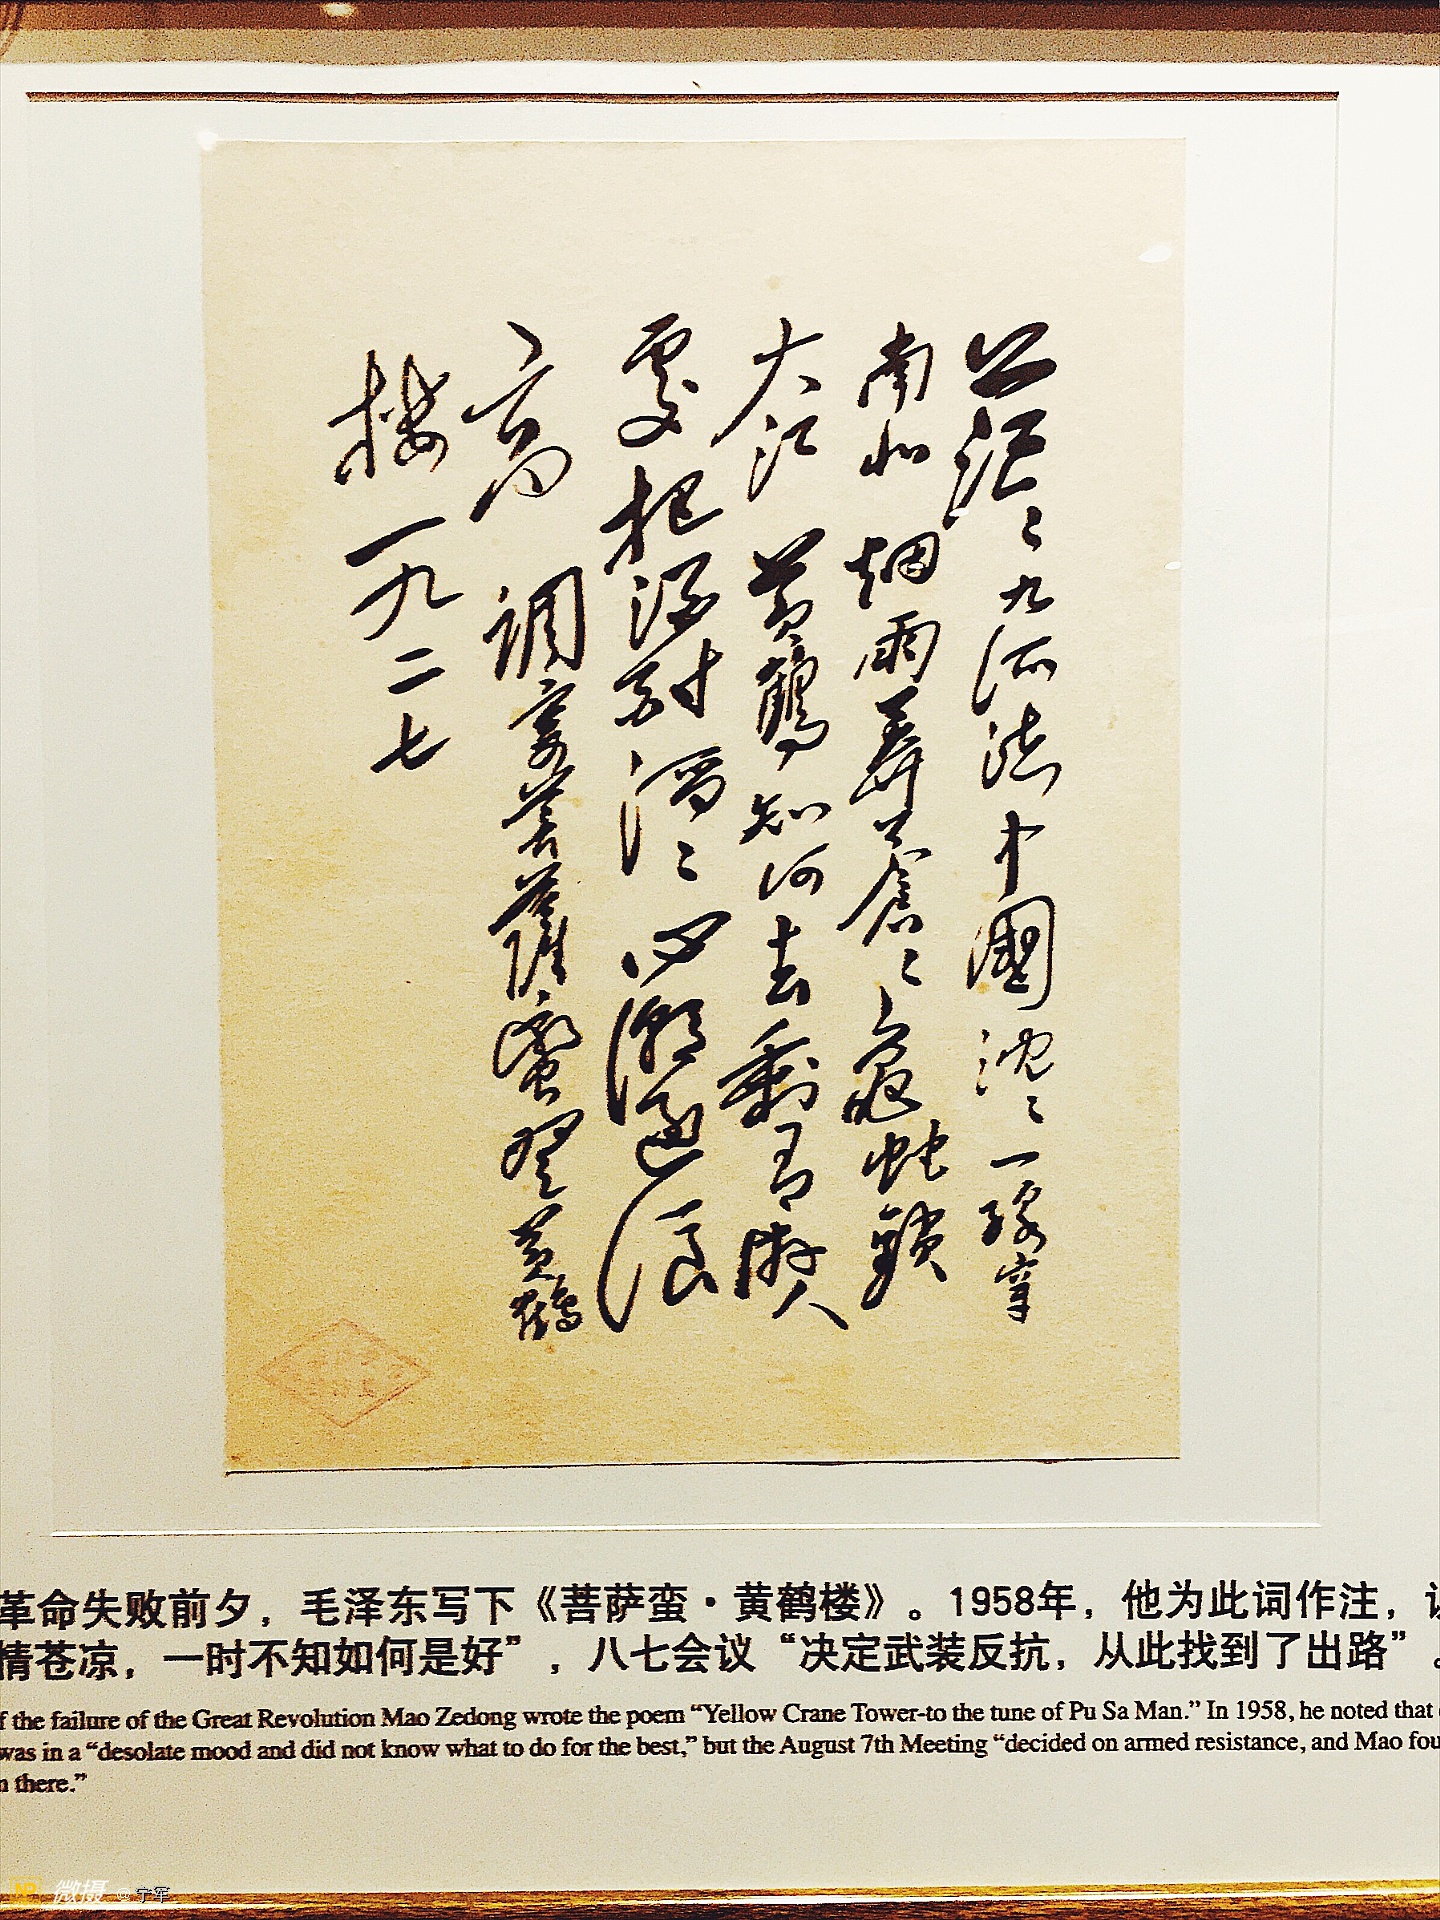 茫〻九派流中國沈〻一線穿
南北烟雨莽蒼〻龜蛇鎖
大江黃鶴知何去剩有遊人
處把酒酎滔〻心潮逐浪
高 調寄菩薩蠻登黃鶴
樓一九二七
革命失败前夕，毛泽东写下《菩萨蛮·黄鹤楼》。1958年，他为此词作注，
情苍凉，一时不知如何是好”，八七会议“决定武装反抗，从此找到了出路”。
f the failure of the Great Revolution Mao Zedong wrote the poem “Yellow Crane Tower-to the tune of Pu Sa Man.” In 1958, he noted that
was in a “desolate mood and did not know what to do for the best,” but the August 7th Meeting “decided on armed resistance, and Mao fou
n there.”
微摄 @宁军